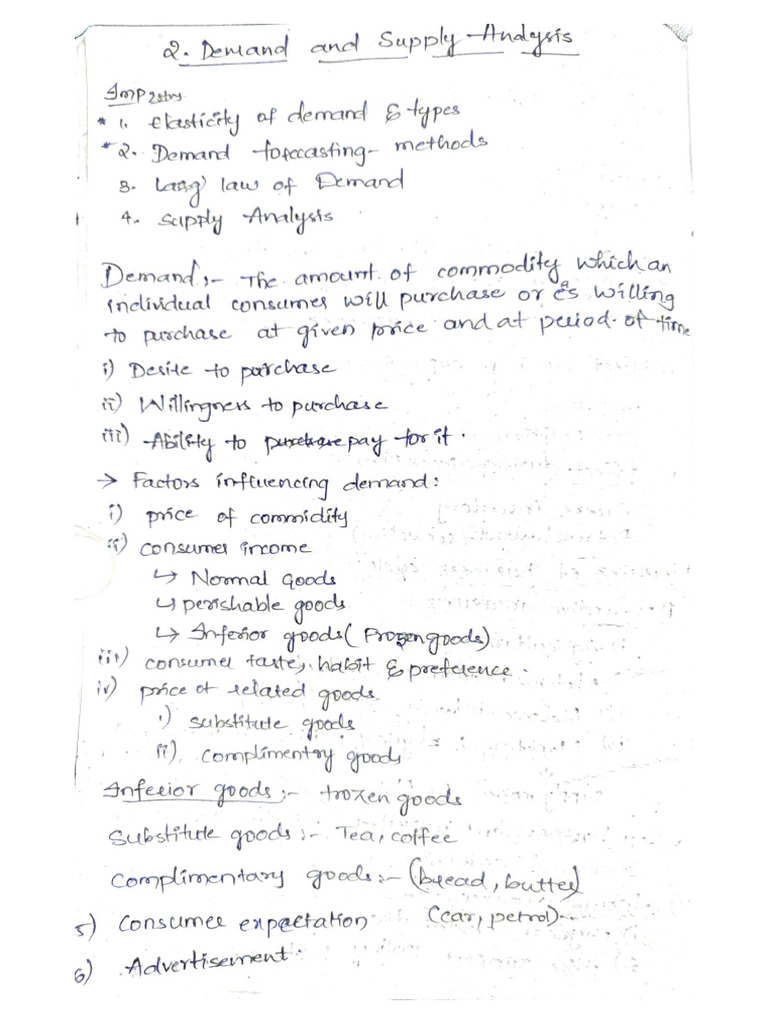 2. Demand and Supply Analysis
Imp
* 1. Elasticity of demand & types
* 2. Demand forecasting- methods
3. law of Demand
4. Supply Analysis
Demand:- The amount of commodity which an
individual consumer will purchase or is willing
to purchase at given price and at period of time
i) Desire to purchase
ii) Willingness to purchase
iii) Ability to pay for it.
→ Factors influencing demand:
i) price of commidity
ii) consumer income
↳ Normal Goods
↳ perishable goods
↳ Inferior goods (Frozen goods)
iii) consumer taste, habit & preference.
iv) price of related goods
i) substitute goods
ii) complimentry goods
Inferior goods:- frozen goods
Substitute goods:- Tea, coffee
Complimentary goods:- (bread, butter)
(car, petrol)
5) Consumer expectation
6) Advertisement.